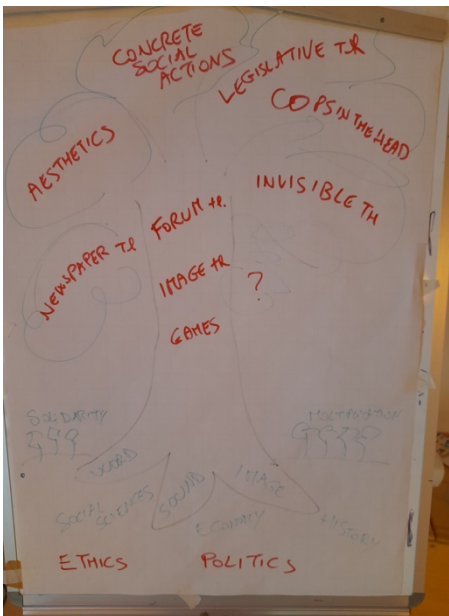 CONCRETE
SOCIAL
ACTIONS
LEGISLATIVE TR
COPS IN THE HEAD
AESTHETICS
INVISIBLE TH
FORUM tR.
NEWSPAPER TR
IMAGE tR
?
GAMES
SOLIDARITY
MULTIPLICATION
WORD
SOUND
IMAGE
SOCIAL
SCIENCES
ECONOMY
HISTORY
ETHICS
POLITICS